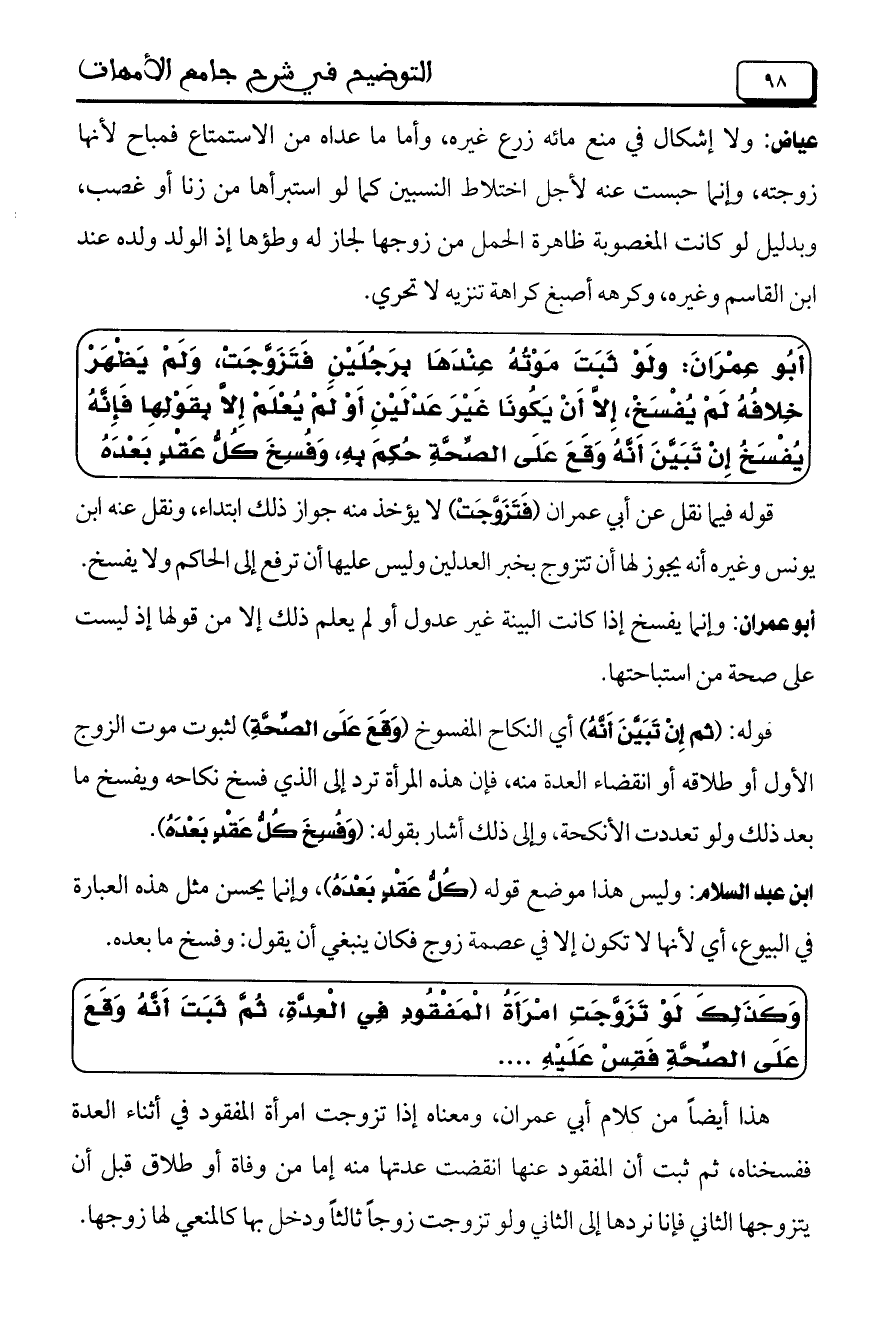 ٩٨
التوضيح في شرح جامع الأمهات
عياض: ولا إشكال في منع مائه زرع غيره، وأما ما عداه من الاستمتاع فمباح لأنها
زوجته، وإنما حبست عنه لأجل اختلاط النسبين كما لو استبرأها من زنا أو غصب،
وبدليل لو كانت المغصوبة ظاهرة الحمل من زوجها لجاز له وطؤها إذ الولد ولده عند
ابن القاسم وغيره، وكرهه أصبغ كراهة تنزيه لا تحري.
أَبُو عِمْرَانَ: ولَوْ ثَبَتَ مَوْتُهُ عِنْدَهَا بِرَجُلَيْنِ فَتَزَوَّجَتْ، وَلَمْ يَظْهَرْ
خِلافُهُ لَمْ يُفْسَخْ، إِلاَّ أَنْ يَكُونَا غَيْرَ عَدْلَيْنِ أَوْ لَمْ يُعْلَمْ إِلاَّ بِقَوْلِهَا فَإِنَّهُ
يُفْسَخُ إِنْ تَبَيَّنَ أَنَّهُ وَقَعَ عَلَى الصِّحَّةِ حُكِمَ بِهِ، وَفُسِخَ كُلُّ عَقْدٍ بَعْدَهُ
قوله فيما نقل عن أبي عمران (فَتَزَوَّجَتْ) لا يؤخذ منه جواز ذلك ابتداء، ونقل عنه ابن
يونس وغيره أنه يجوز لها أن تتزوج بخبر العدلين وليس عليها أن ترفع إلى الحاكم ولا يفسخ.
أبو عمران: وإنما يفسخ إذا كانت البينة غير عدول أو لم يعلم ذلك إلا من قولها إذ ليست
على صحة من استباحتها.
قوله: (ثم إِنْ تَبَيَّنَ أَنَّهُ) أي النكاح المفسوخ (وَقَعَ عَلَى الصِّحَّةِ) لثبوت موت الزوج
الأول أو طلاقه أو انقضاء العدة منه، فإن هذه المرأة ترد إلى الذي فسخ نكاحه ويفسخ ما
بعد ذلك ولو تعددت الأنكحة، وإلى ذلك أشار بقوله: (وَفُسِخَ كُلُّ عَقْدٍ بَعْدَهُ).
ابن عبد السلام: وليس هذا موضع قوله (كُلُّ عَقْدٍ بَعْدَهُ)، وإنما يحسن مثل هذه العبارة
في البيوع، أي لأنها لا تكون إلا في عصمة زوج فكان ينبغي أن يقول: وفسخ ما بعده.
وَكَذَلِكَ لَوْ تَزَوَّجَتِ امْرَأَةُ الْمَفْقُودِ فِي الْعِدَّةِ، ثُمَّ ثَبَتَ أَنَّهُ وَقَعَ
عَلَى الصِّحَّةِ فَقِسْ عَلَيْهِ ....
هذا أيضاً من كلام أبي عمران، ومعناه إذا تزوجت امرأة المفقود في أثناء العدة
ففسخناه، ثم ثبت أن المفقود عنها انقضت عدتها منه إما من وفاة أو طلاق قبل أن
يتزوجها الثاني فإنا نردها إلى الثاني ولو تزوجت زوجاً ثالثاً ودخل بها كالمنعي لها زوجها.